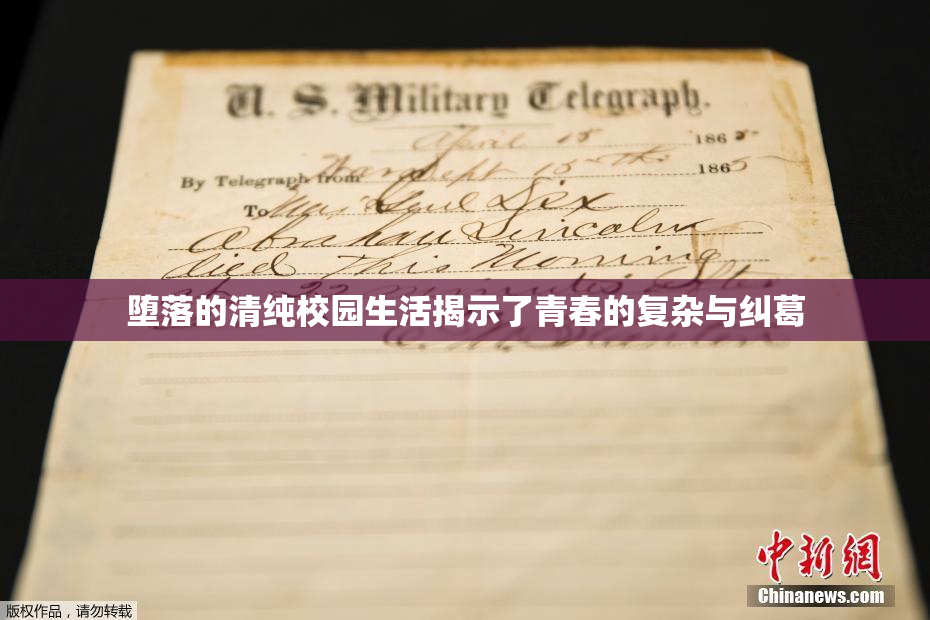 U. S. Military Telegraph.
April 15 1865
By Telegraph from War Dept 15th 1865
To Maj Genl Dix
Abraham Lincoln
died This Morning
at 22 minutes after
堕落的清纯校园生活揭示了青春的复杂与纠葛
E. M. Stanton
中新网
Chinanews.com
版权作品，请勿转载